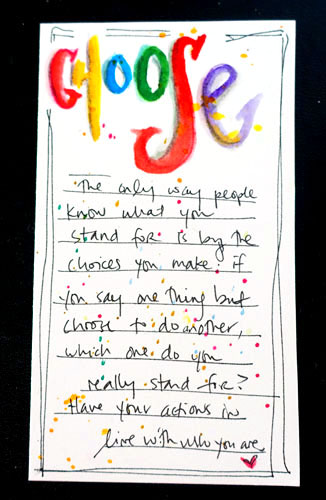 CHOOSE
The only way people
know what you
stand for is by the
choices you make. if
you say one thing but
choose to do another,
which one do you
really stand for?
Have your actions in
line with who you are.